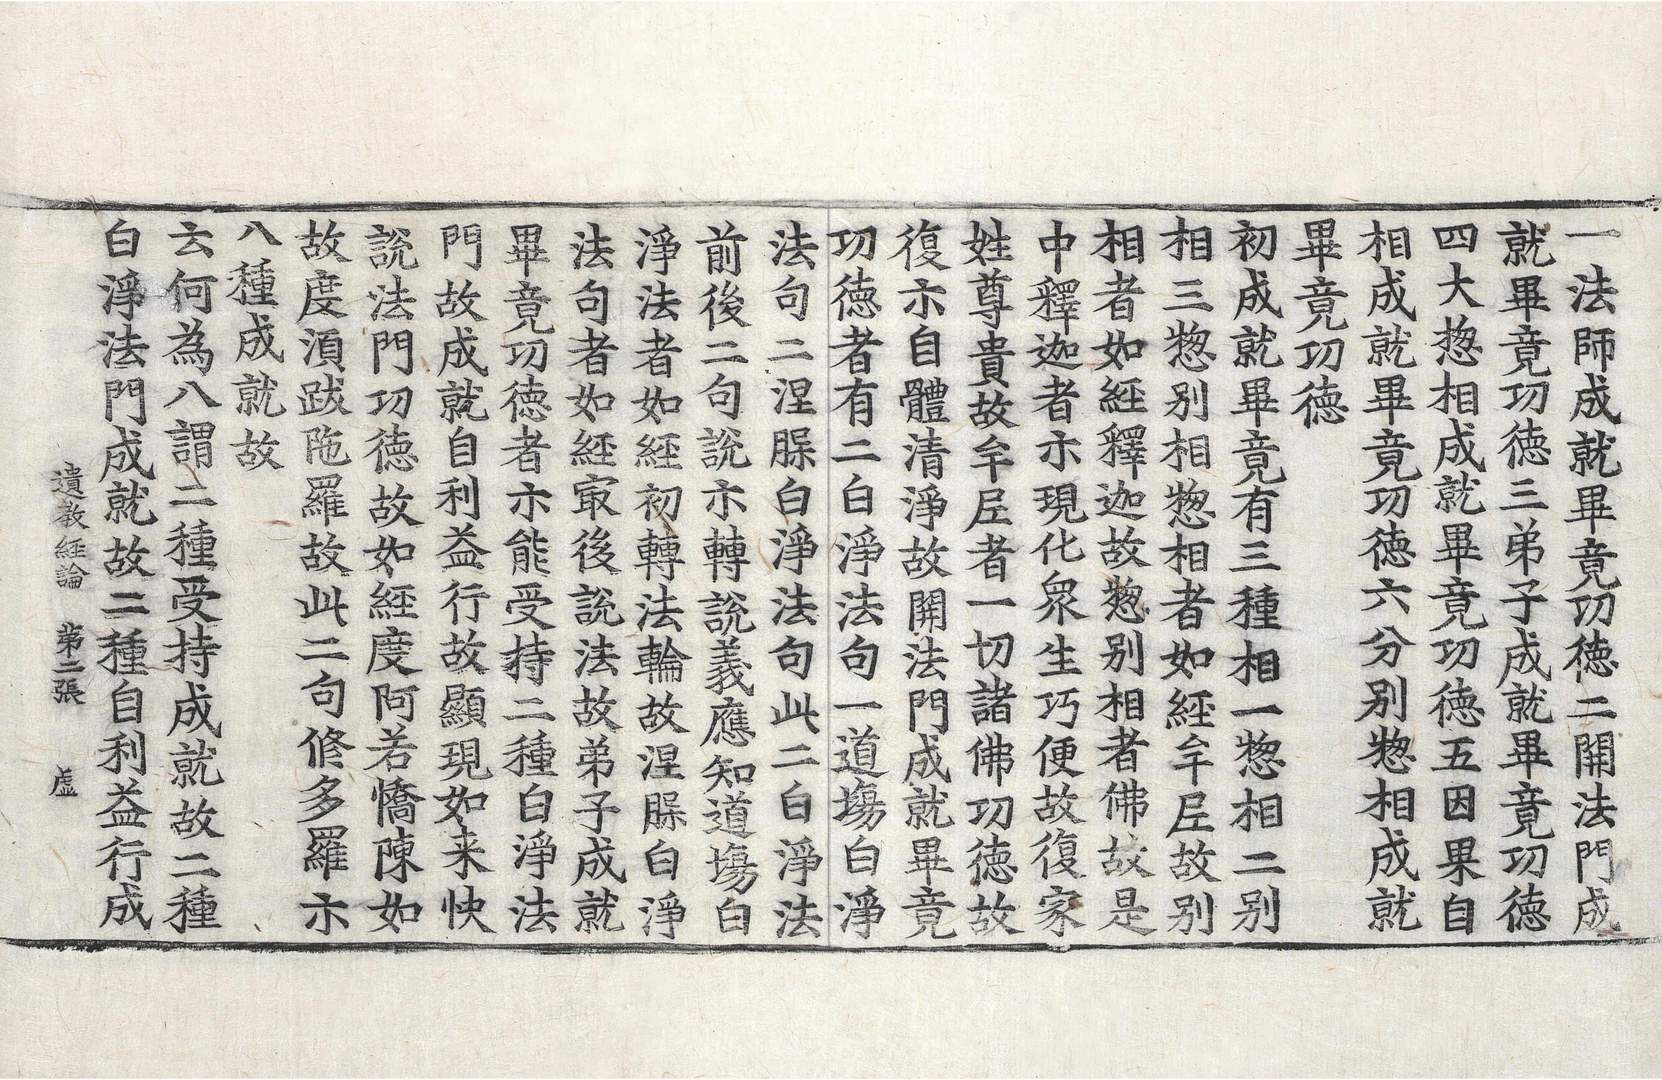 一法師成就畢竟功徳二開法門成
就畢竟功徳三弟子成就畢竟功徳
四大惣相成就畢竟功徳五因果自
相成就畢竟功徳六分別惣相成就
畢竟功徳
初成就畢竟有三種相一惣相二別
相三惣別相惣相者如經牟尼故別
相者如經釋迦故惣別相者佛故是
中釋迦者示現化衆生巧便故復家
姓尊貴故牟尼者一切諸佛功徳故
復示自體清淨故開法門成就畢竟
功徳者有二白淨法句一道場白淨
法句二涅槃白淨法句此二白淨法
前後二句說示轉說義應知道場白
淨法者如經初轉法輪故涅槃白淨
法句者如經㝡後說法故弟子成就
畢竟功徳者示能受持二種白淨法
門故成就自利益行故顯現如来快
說法門功徳故如經度阿若憍陳如
故度湏跋陁羅故此二句修多羅示
八種成就故
云何為八謂二種受持成就故二種
白淨法門成就故二種自利益行成
遺教經論 第二張 虛